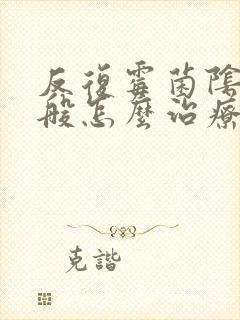 反復霉菌陰
般怎麼治療
克諧